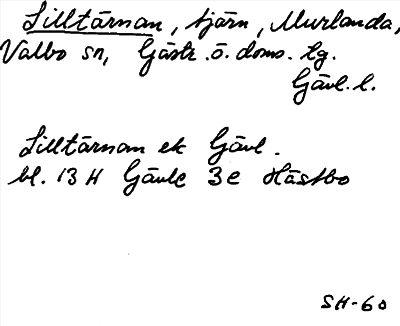 Lilltärnan, tjärn, Murlanda,
Valbo sn, Gästr. ö. doms. tg.
Gävl. l.
Lilltärnan ek Gävl.
bl. 13 H Gävle 3 e Hästbo
SH-60